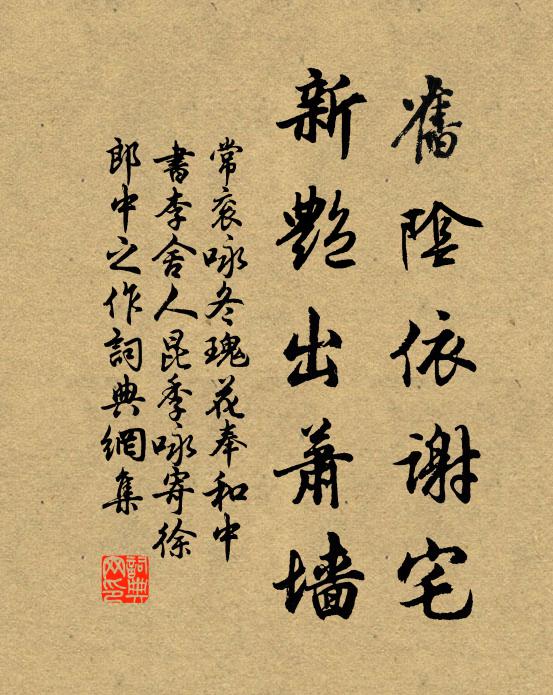 舊陰依謝宅
新艷出蕭墙
常衮咏冬瑰花奉和中
書李舍人昆季咏寄徐
郎中之作詞典網集
詞典网印